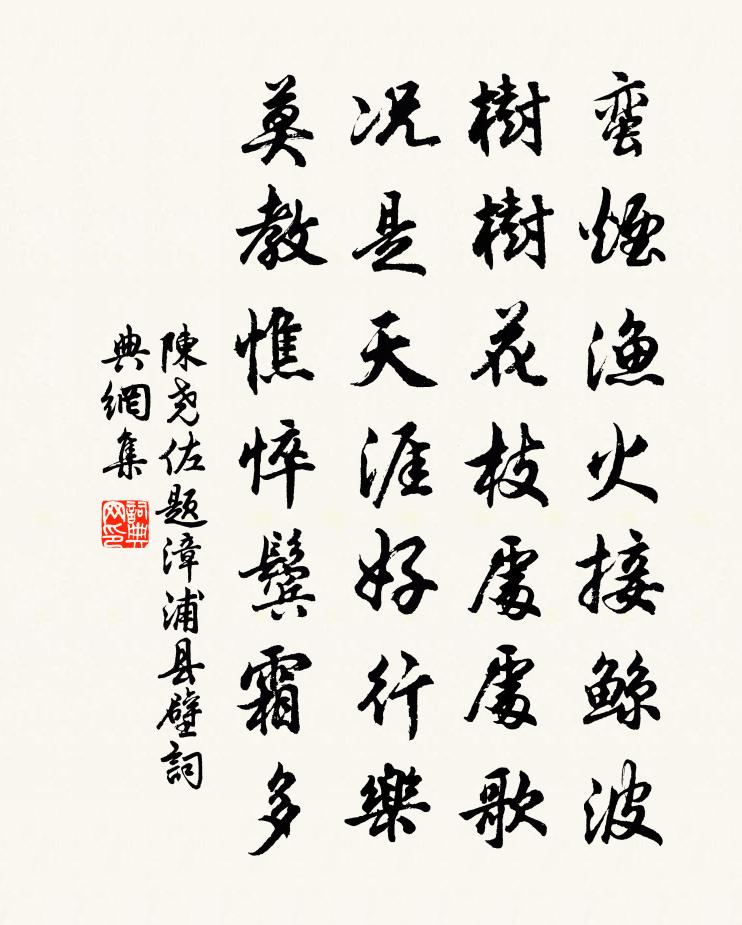 蛮煙漁火接鯨波
樹樹花枝處處歌
况是天涯好行樂
莫教憔悴鬓霜多
陳尧佐题漳浦县壁詞
典網集
詞典
网印